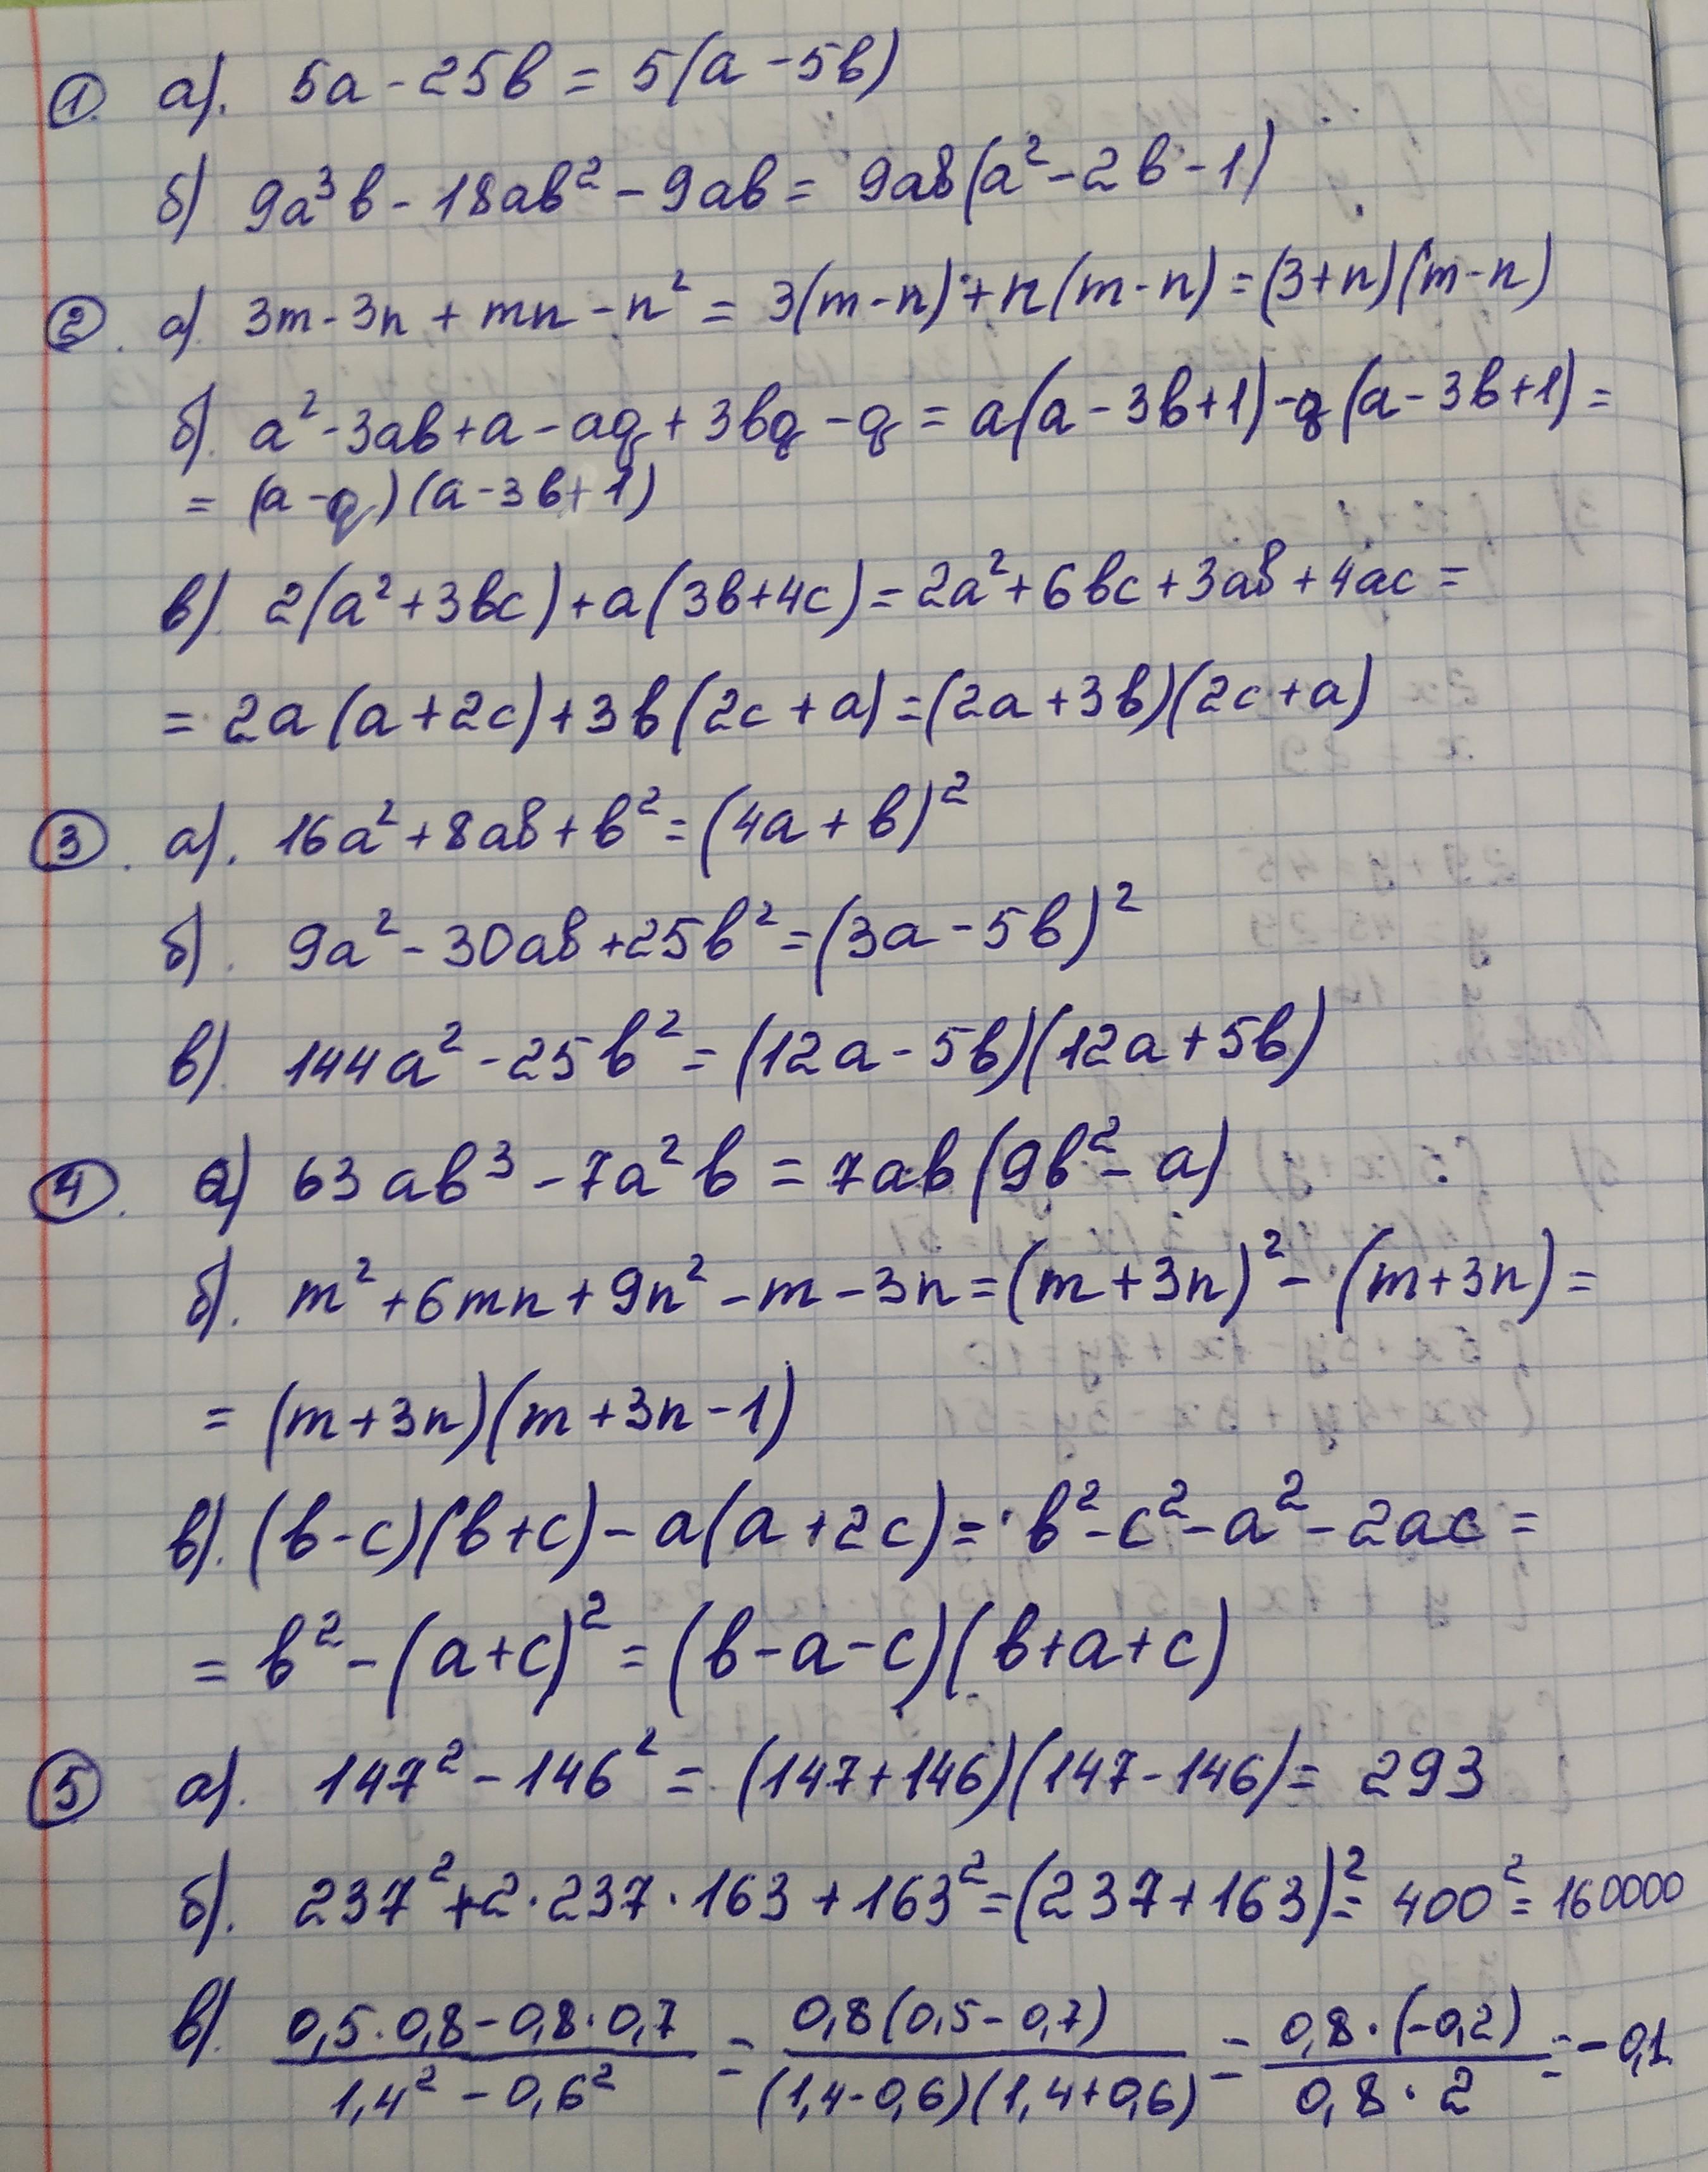 ① а). 5a - 25b = 5(a - 5b)
б) 9a³b - 18ab² - 9ab = 9ab(a² - 2b - 1)
②. а). 3m - 3n + mn - n² = 3(m - n) + n(m - n) = (3 + n)(m - n)
б). a² - 3ab + a - aq + 3bq - q = a(a - 3b + 1) - q(a - 3b + 1) =
= (a - q)(a - 3b + 1)
в). 2(a² + 3bc) + a(3b + 4c) = 2a² + 6bc + 3ab + 4ac =
= 2a(a + 2c) + 3b(2c + a) = (2a + 3b)(2c + a)
③. а). 16a² + 8ab + b² = (4a + b)²
б). 9a² - 30ab + 25b² = (3a - 5b)²
в). 144a² - 25b² = (12a - 5b)(12a + 5b)
④. а) 63ab³ - 7a²b = 7ab(9b² - a)
б). m² + 6mn + 9n² - m - 3n = (m + 3n)² - (m + 3n) =
= (m + 3n)(m + 3n - 1)
в). (b - c)(b + c) - a(a + 2c) = b² - c² - a² - 2ac =
= b² - (a + c)² = (b - a - c)(b + a + c)
⑤ а). 147² - 146² = (147 + 146)(147 - 146) = 293
б). 237² + 2 · 237 · 163 + 163² = (237 + 163)² = 400² = 160000
в). (0,5 · 0,8 - 0,8 · 0,7)/(1,4² - 0,6²) = 0,8(0,5 - 0,7)/((1,4 - 0,6)(1,4 + 0,6)) = 0,8 · (-0,2)/(0,8 · 2) = -0,1